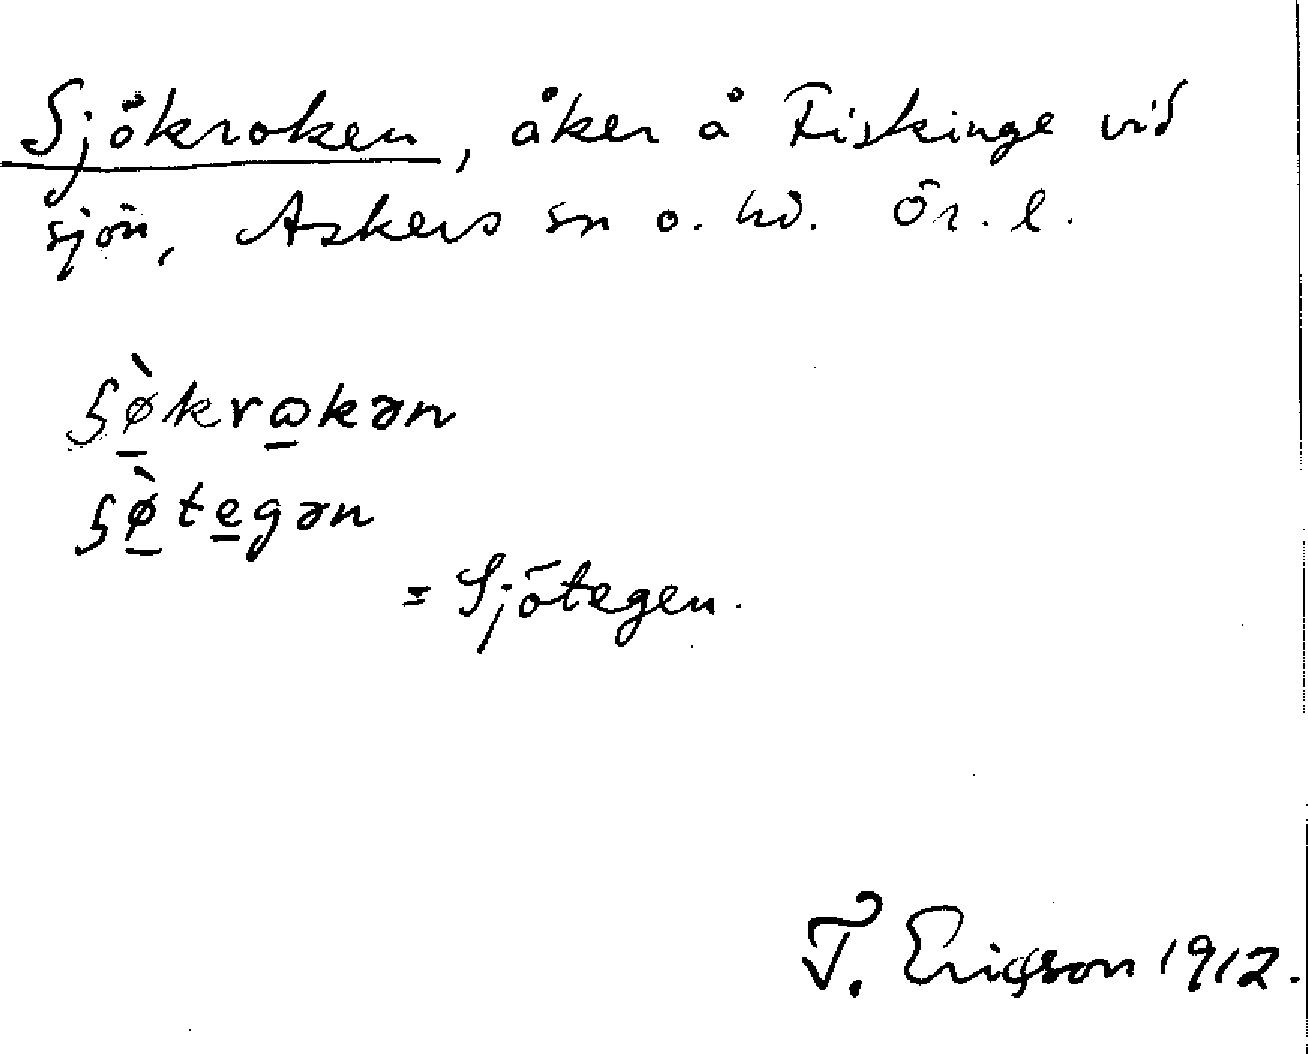 Sjökroken, åker å Fiskinge vid
sjön, Askers sn o. hd. Ör. l.
ʂø̱̀krω̱kən
ʂø̱̀te̱gən
= Sjötegen.
T. Ericsson 1912.